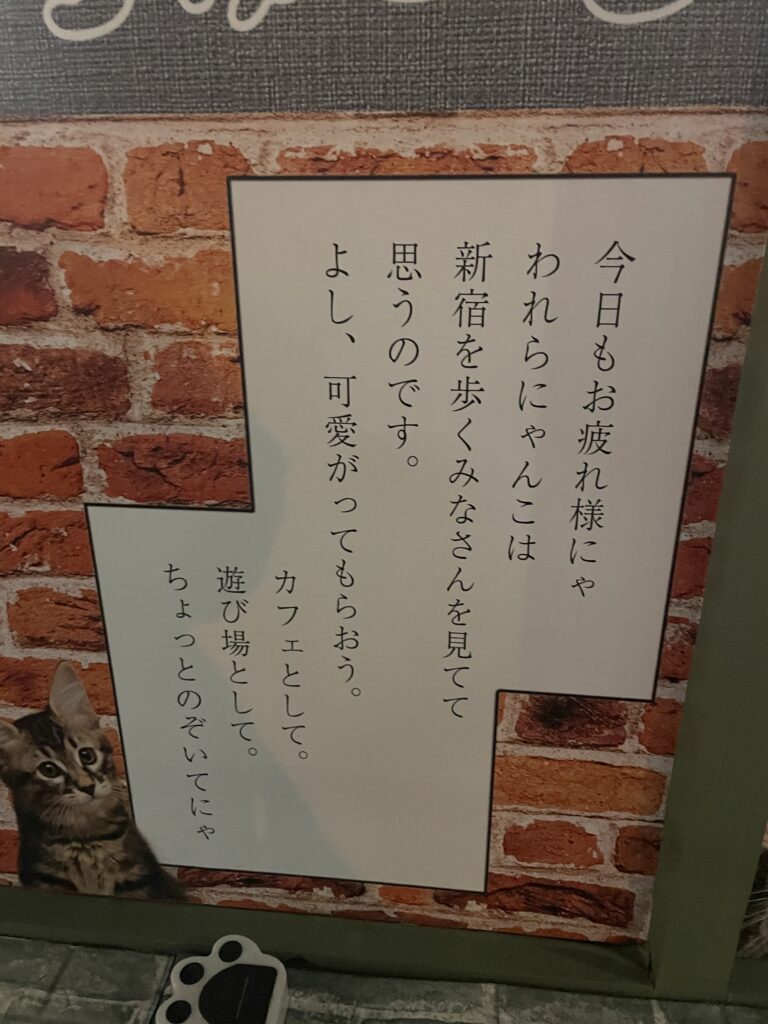 今日もお疲れ様にゃ
われらにゃんこは
新宿を歩くみなさんを見てて
思うのです。
よし、可愛がってもらおう。
カフェとして。
遊び場として。
ちょっとのぞいてにゃ